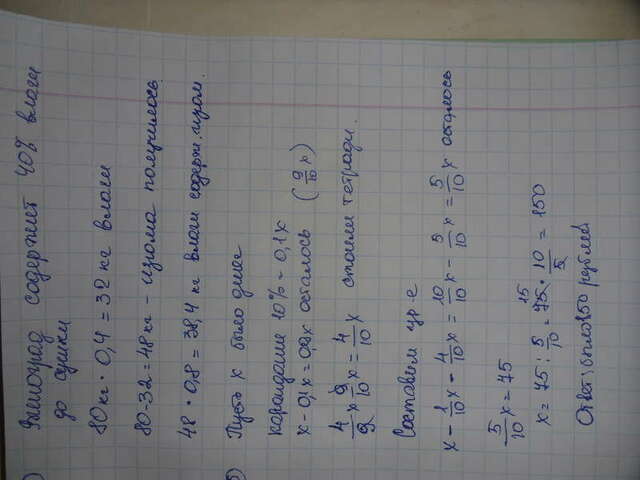 ) Виноград содержит 40% влаги
до сушки
80кг · 0,4 = 32 кг влаги
80-32 = 48 кг - изюма получилось.
48 · 0,8 = 38,4 кг влаги содерж. изюм.
5) Пусть x было денег
карандаши 10% - 0,1x
x - 0,1x = 0,9x осталось (9/10 x)
4/9 x 9/10 x = 4/10 x стоили тетради.
Составим ур-е
x - 1/10 x - 4/10 x = 10/10 x - 5/10 x = 5/10 x осталось
5/10 x = 75
x = 75 : 5/10 = 75 15 · 10/5 = 150
Ответ: было 150 рублей